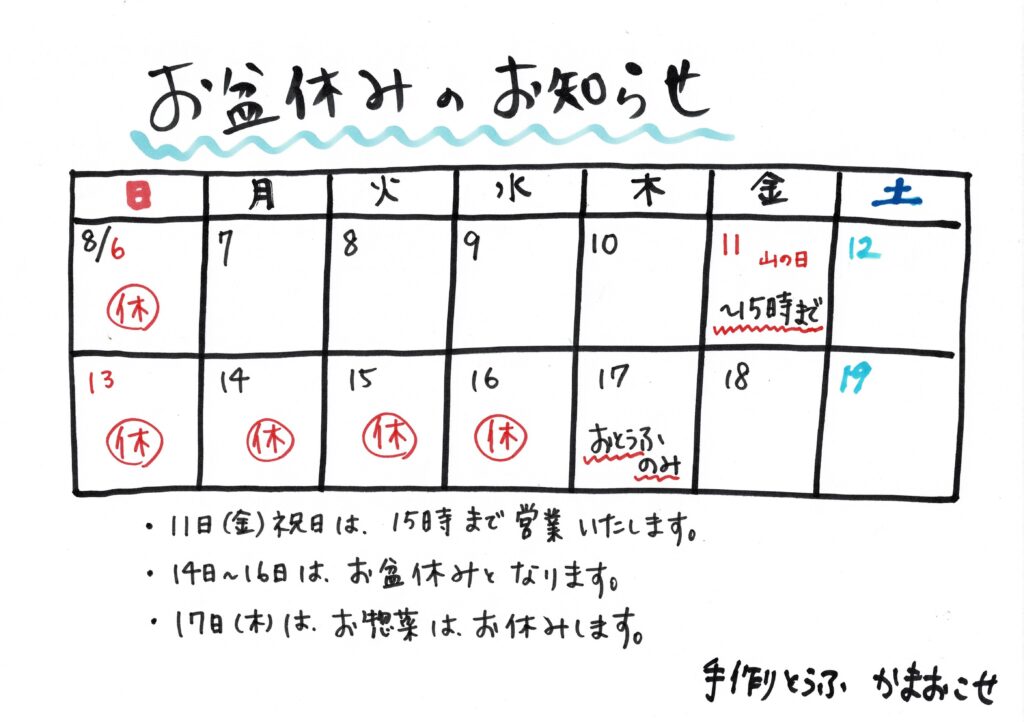 お盆休みのお知らせ
日 月 火 水 木 金 土
8/6 7 8 9 10 11 山の日 12
休 ~15時まで
13 14 15 16 17 18 19
休 休 休 休 おとうふ
のみ
・11日(金)祝日は、15時まで営業いたします。
・14日~16日は、お盆休みとなります。
・17日(木)は、お惣菜は、お休みします。
手作りとうふ かまおこせ